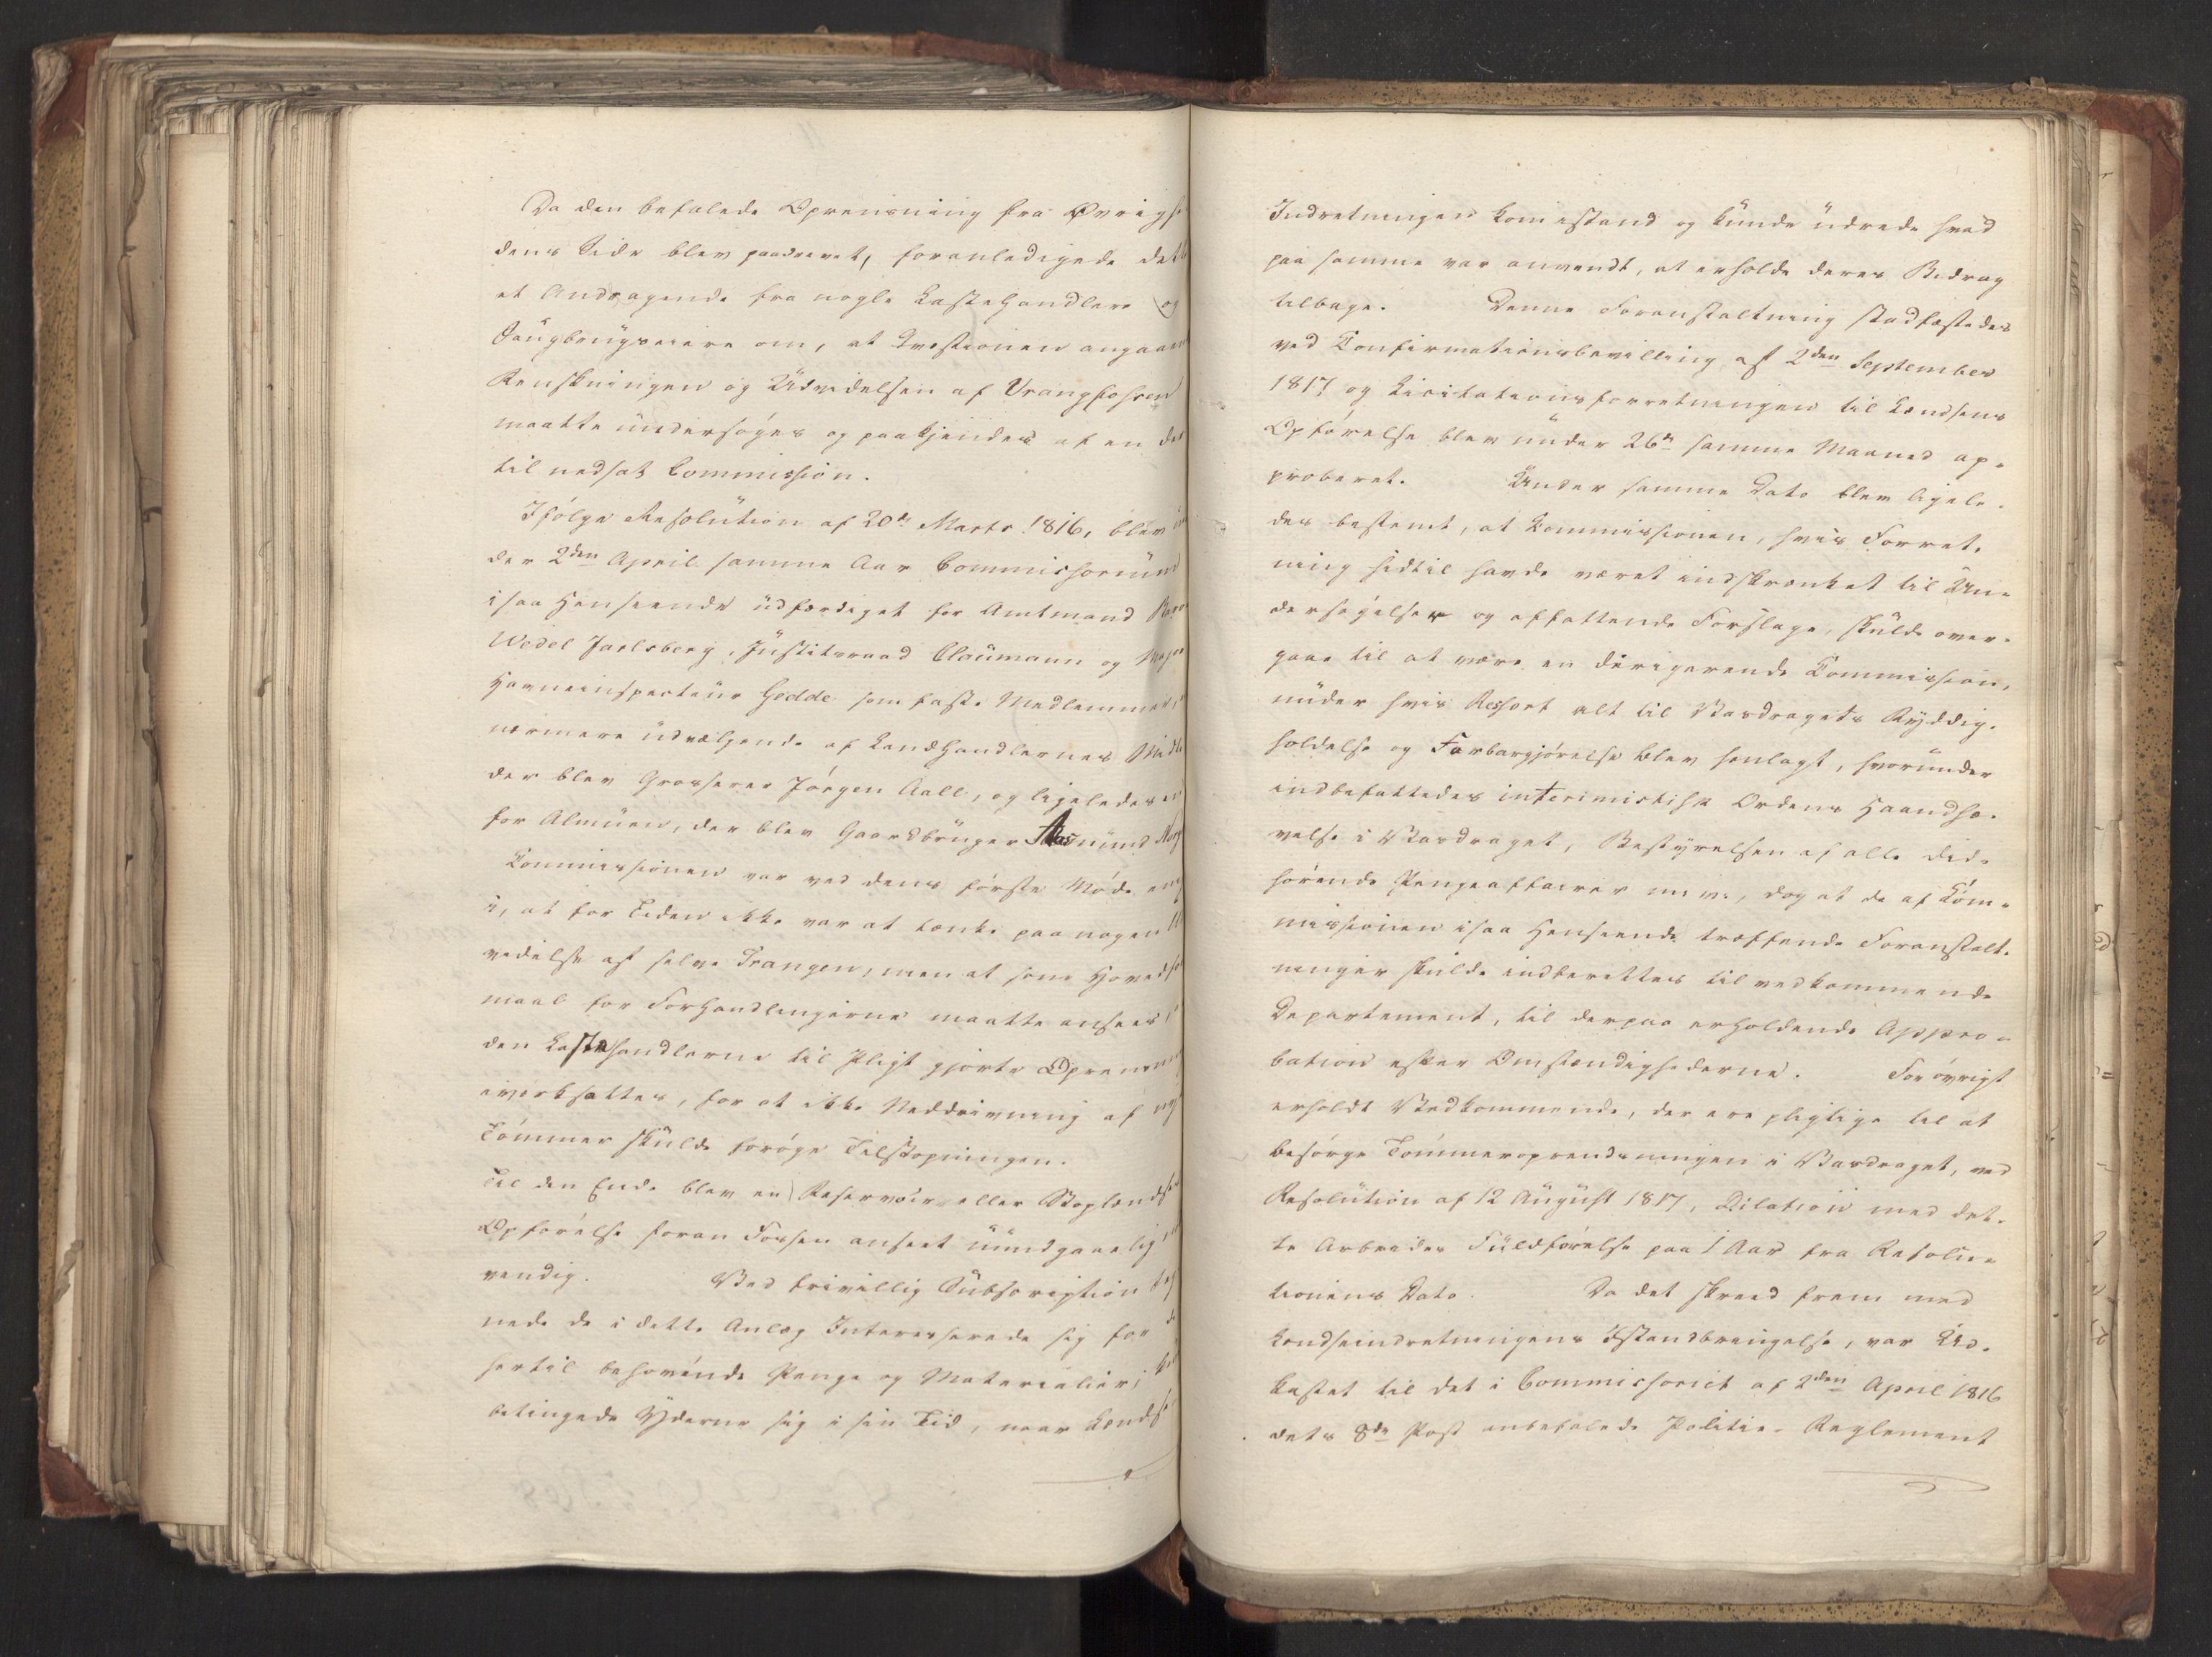 Da den befalede Oprensning fra Øvrighe
dens Side blev paadrevet, foranledigede det
et Andragende fra nogle Lasthandlere og
Saugbrugseiere om, at Qvæstionen angaaen
Renskningen og Udvidelsen af Vrangfossen
maatte undersøges og paakjendes af en der
til nedsat Commission.
Ifølge Resolution af 20de Marts 1816, blev un
der 2den April samme Aar Commissorium
i saa Henseende udfærdiget for Amtmand
Wedel Jarlsberg, Justitsraad Claumann og Major
Havneinspecteur Gedde som faste Medlemmer,
nærmere udvælgende af Landhandlernes Midte
der blev Grosserer Jørgen Aall, og ligeledes en
for Almuen, der blev Gaardbruger Aasmund
Commissionen var ved dens første Møde enig
i, at for Tiden ikke var at tænke paa nogen Ud
videlse af selve Trangen, men at som Hovedfor
maal for Forhandlingerne maatte ansees,
den Lasthandlerne til Pligt gjorte Oprensning
iværksattes, for at ikke Neddrivning af nyt
Tømmer skulde forøge Tilstopningen.
Til den Ende blev en Reservoir eller Stoplændse
Opførelse foran Fossen anseet uundgaaelig
vendig. Ved frivillig Subscription teg
nede de i dette Anlæg Interesserede sig for de
hertil behøvende Penge og Materialier;
betingede Yderne sig i sin Tid, naar Lændse
Indretningen kom istand og kunde udrede hvad
paa samme var anvendt, at erholde deres Bidrag
tilbage. Denne Foranstaltning stadfæstedes
ved Confirmationsbevilling af 2den September
1817 og Licitationsforretningen til Lændsens
Opførelse blev under 26de samme Maaned ap-
proberet. Under samme Dato blev ligele-
des bestemt, at Kommissionen, hvis Forret-
ning hidtil havde været indskrænket til Un-
dersøgelser og affattende Forslage, skulde over-
gaae til at være en dirigerende Commission,
under hvis Ressort alt til Vasdragets Ryddig-
holdelse og Farbargjørelse blev henlagt, hvorunder
indbefattedes interimistisk Ordens Haandhæ-
velse i Vasdraget, Bestyrelsen af alle did-
hørende Pengeaffairer m.v., dog at de af Com-
missionen i saa Henseende træffende Foranstalt-
ninger skulde indberettes til vedkommende
Departement, til derpaa erholdende Appro-
bation efter Omstændighederne. Forøvrigt
erholdt Vedkommende, der ere pligtige til at
besørge Tømmeroprensningen i Vasdraget, ved
Resolution af 12 August 1817, Dilation med det-
te Arbeides Fuldførelse paa 1 Aar fra Resolu-
tionens Dato. Da det skreed frem med
Lændseindretningens Istandbringelse, var Ud-
kastet til det i Commissoriet af 2den April 1816
dets 8de Post anbefalede Politie-Reglement